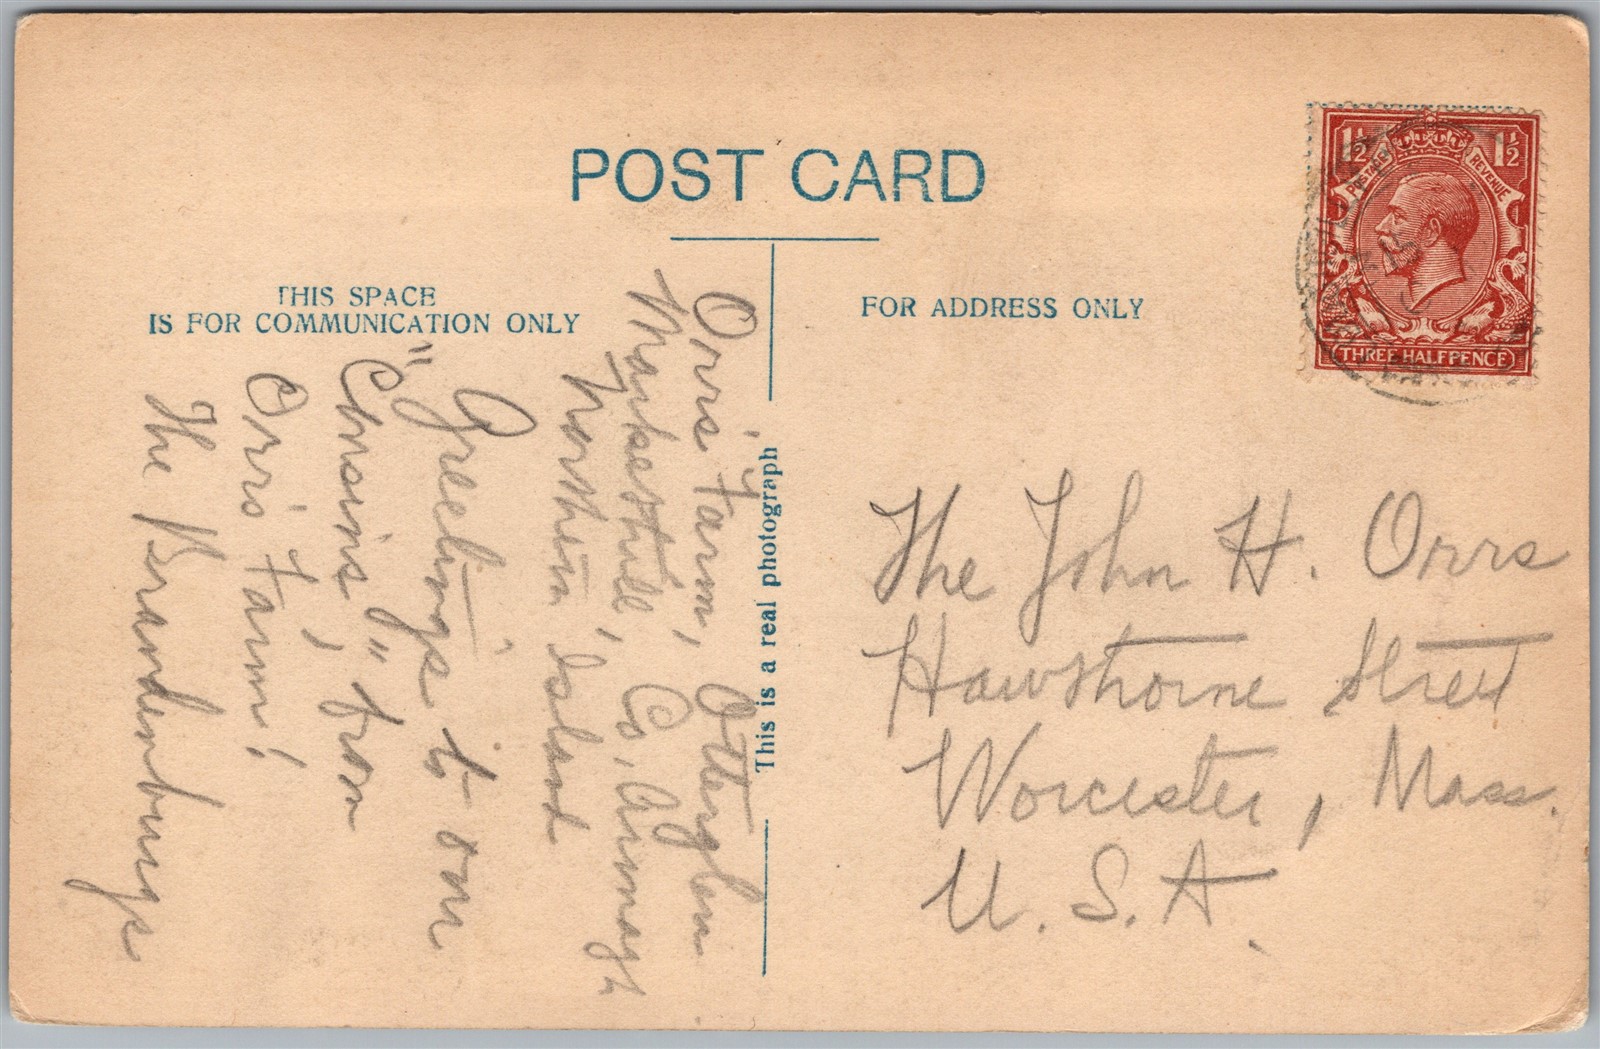 POST CARD
THIS SPACE
IS FOR COMMUNICATION ONLY
FOR ADDRESS ONLY
This is a real photograph
1½ 1½
POSTAGE REVENUE
THREE HALFPENCE
Orrs' Farm, Otterglen
Markethill, Co. Armagh
Northern Island
Greetings to our
"Cousins", from
Orrs' Farm!
The Brandenburgs
The John H. Orrs
Hawthorne Street
Worcester, Mass.
U.S.A.